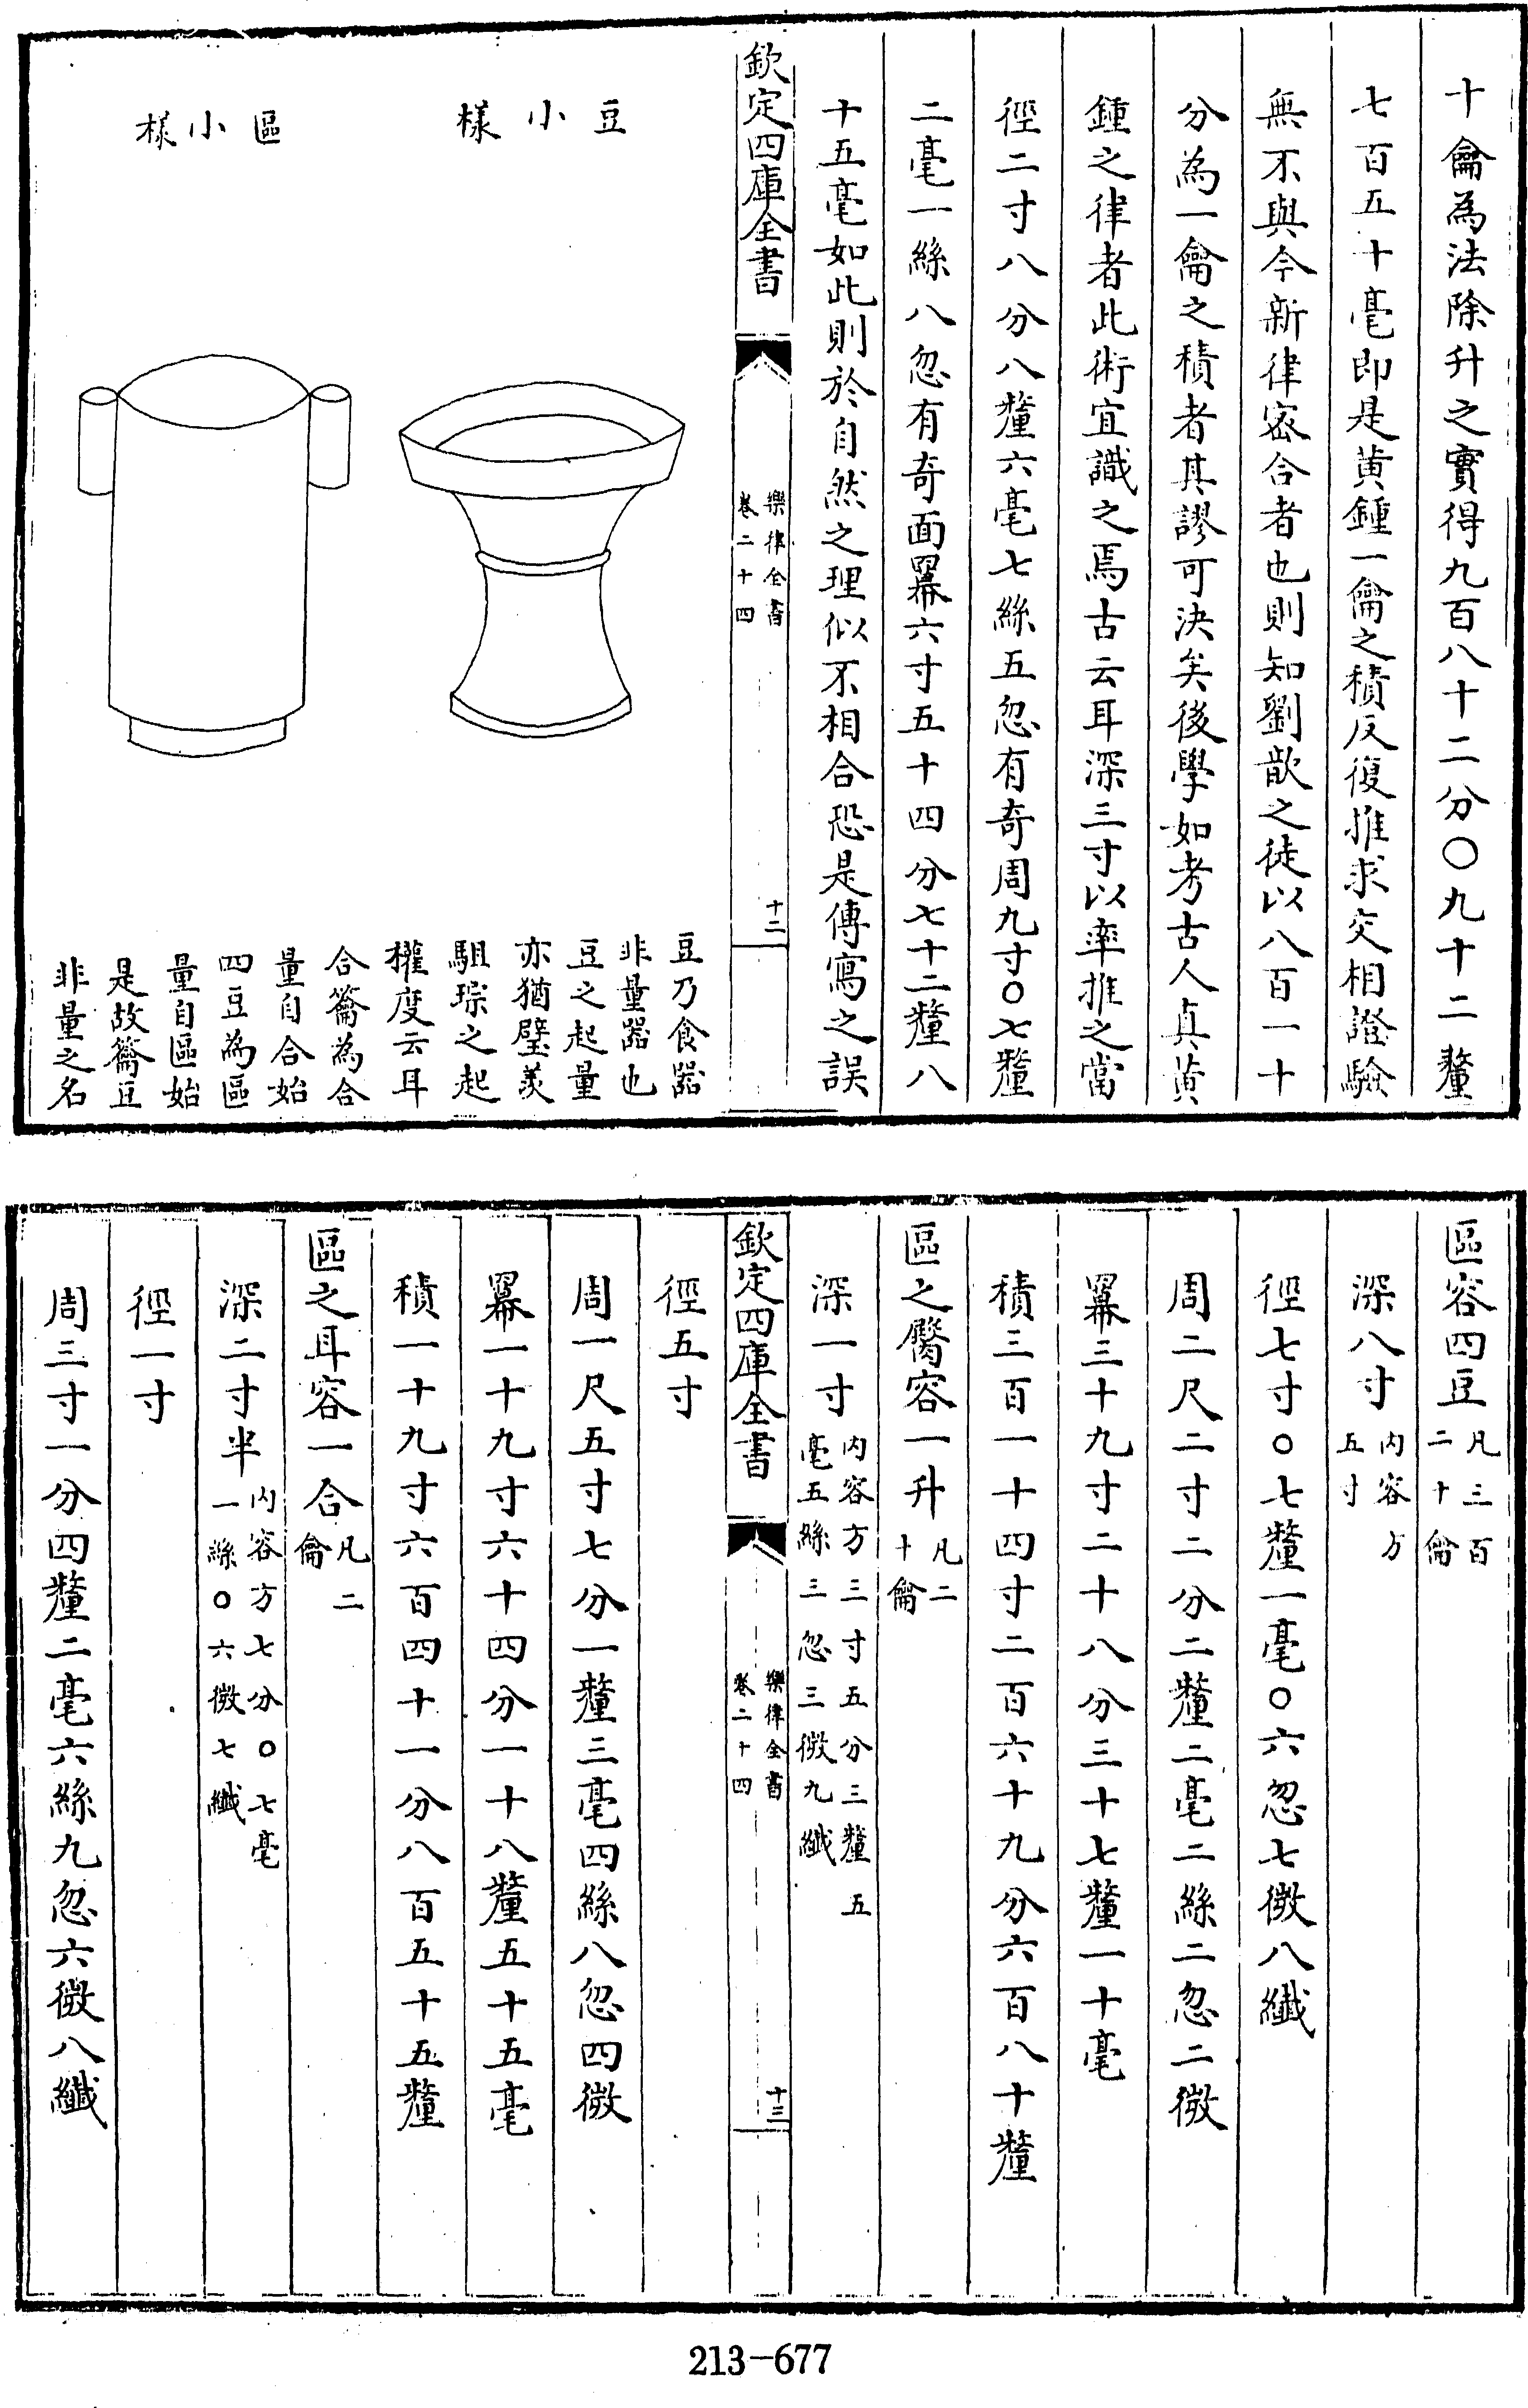 十龠為法除升之實得九百八十二分〇九十二釐
七百五十毫即是黄鍾一龠之積反復推求交相證驗
無不與今新律宻合者也則知劉歆之徒以八百一十
分為一龠之積者其謬可決矣後學如考古人真黄
鍾之律者此術宜識之焉古云耳深三寸以率推之當
徑二寸八分八釐六毫七絲五忽有奇周九寸〇七釐
二毫一絲八忽有奇面羃六寸五十四分七十二釐八
十五毫如此則於自然之理似不相合恐是傳寫之誤
欽定四庫全書
樂律全書
卷二十四
十二
豆小樣
區小樣
豆乃食器
非量器也
豆之起量
亦猶璧羡
駔琮之起
權度云耳
合籥為合
量自合始
四豆為區
量自區始
是故籥豆
非量之名
區容四豆凡三百
二十龠
深八寸内容方
五寸
徑七寸〇七釐一毫〇六忽七微八纖
周二尺二寸二分二釐二毫二絲二忽二微
羃三十九寸二十八分三十七釐一十毫
積三百一十四寸二百六十九分六百八十釐
區之臋容一升凡二
十龠
深一寸内容方三寸五分三釐五
毫五絲三忽三微九纖
欽定四庫全書
樂律全書
卷二十四
十三
徑五寸
周一尺五寸七分一釐三毫四絲八忽四微
羃一十九寸六十四分一十八釐五十五毫
積一十九寸六百四十一分八百五十五釐
區之耳容一合凡二
龠
深二寸半内容方七分〇七毫
一絲〇六微七纖
徑一寸
周三寸一分四釐二毫六絲九忽六微八纖
213-677